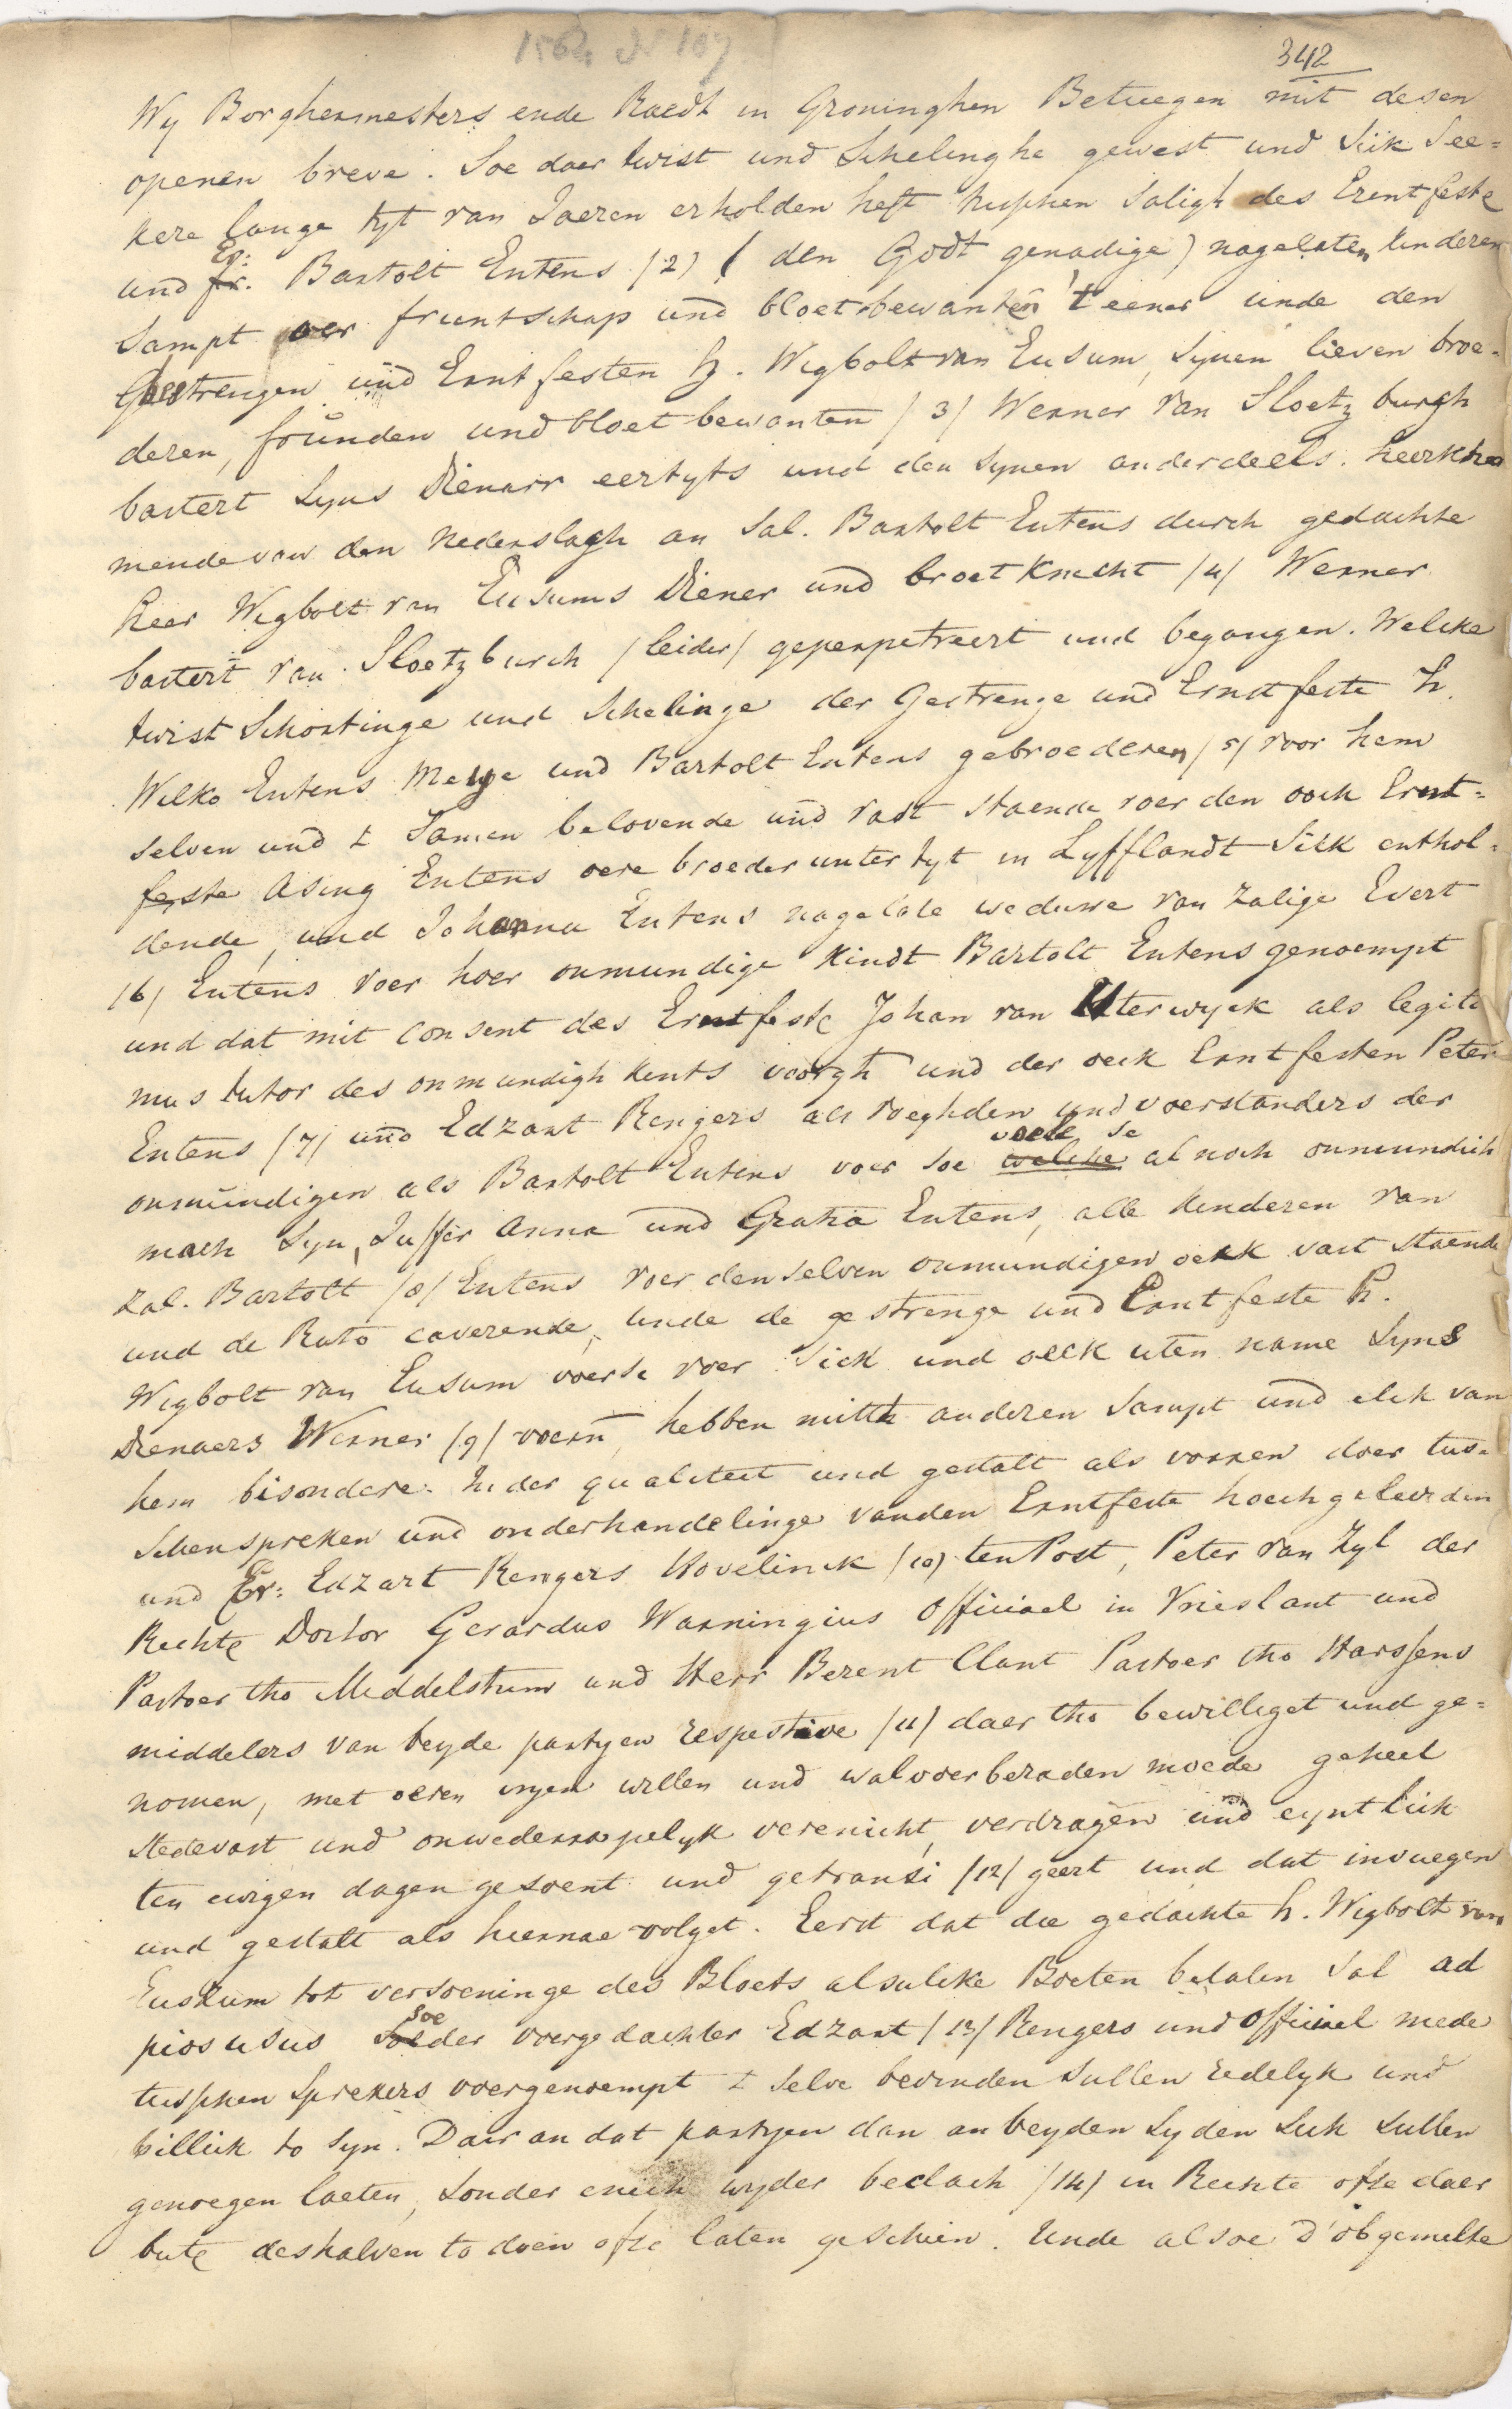 1564 N 107
342
Wy Borghermesters ende Raedt in Groninghen Betuegen mit desen
openen breve. Soe daer twist und Schelinghe gewest und Siik See=
kere lange tyt van Jaeren erholden heft tusschen Saligh des Erentfeste
und fr. Er: Bartolt Entens /2/ ( den Godt genadige) nagelaten kinderen
Sampt oer fruntschap und bloetbewanten 't eener unde den
Gestrengen und Erntfesten h. Wigbolt van Eusum, synen lieven broe=
deren, frunden und bloetbewanten /3/ Werner van Sloetzburgh
bastert Syns Dienarr eertyts und den synen anderdeels. heerkho
mende van den nederslagh an Sal. Bartolt Entens durch gedachte
heer Wigbolt van Eusums Diener und broet Knecht /4/ Werner
bastert van Sloetzburch /leider/ geperpetreert und begangen. Welcke
twist Schortinge und Schelinge der Gestrenge und Ernstfeste h.
Wilko Entens Meyge und Bartolt Entens gebroederen /5/ voor hem
selven und t Samen belovende und vast staende voer den ooch Ernt=
feste Asing Entens oere broeder unter tyt in Lyfflandt Siik enthol=
dende, und Johanna Entens nagelate weduwe van zalige Evert
/6/ Entens voer hoer onmundige Kindt Bartolt Entens genoempt
und dat mit Consent des Erntfeste Johan van Uterwyck als legiti
mus tutor des onmundigh kents voorgh und der oeck Erntfesten Peter
Entens /7/ und Edzart Rengers als voeghden und voerstanders der
onmundigen als Bartolt Entens voer soe welcke voele se alnoch onmundich
mach Syn, Juffer Anna und Gratia Entens, alle kinderen van
zal. Bartolt /8/ Entens voer denselven onmundigen oeck vast staende
und de Rato caverende, unde de gestrenge und Erntfeste h.
Wigbolt van Eusum voersc voer Sick und oeck uten name Syns
Dienaers Werner /9/ voern, hebben mitth anderen Sampt und elck van
hem bisondere. In der qualiteit und gestalt als vorren doer tus=
schenspreken und onderhandelinge vanden Erntfeste hoechgeleerden
und Er: Edzart Rengers Hovelinck /10/ ten Post, Peter van Zyl der
Rechte Doctor Gerardus Warningius Officiael in Vrieslant und
Pastoer tho Middelstum und Herr Berent Clant Pastoer tho Harssens
middelers van beyde partyen respective /11/ daer tho bewilliget und ge=
nomen, met oeren vryen willen und walvoerberaden moede geheel
stedevast und onwederropelyk verenicht, verdragen und eyntlick
ten ewigen dagen gesoent und getransi /12/ geert und dat invuegen
und gestalt als hiernae volget. Eerst dat die gedachte h. Wigbolt van
Eusum tot versoeninge des Bloets alsulcke Boeten betalen Sal ad
pios usus soe der voergedachter Edzart /13/ Rengers und officiael mede
tusschen Sprekers voergenoempt t selve bevinden sullen redelyk und
billick to syn. Dair an dat partyen dan an beyden Syden Sick sullen
genoegen laeten, sonder enich wyder beclach /14/ in Rechte ofte daer
bute deshalven to doen ofte laten geschien. Unde alsoe d'obgemelte